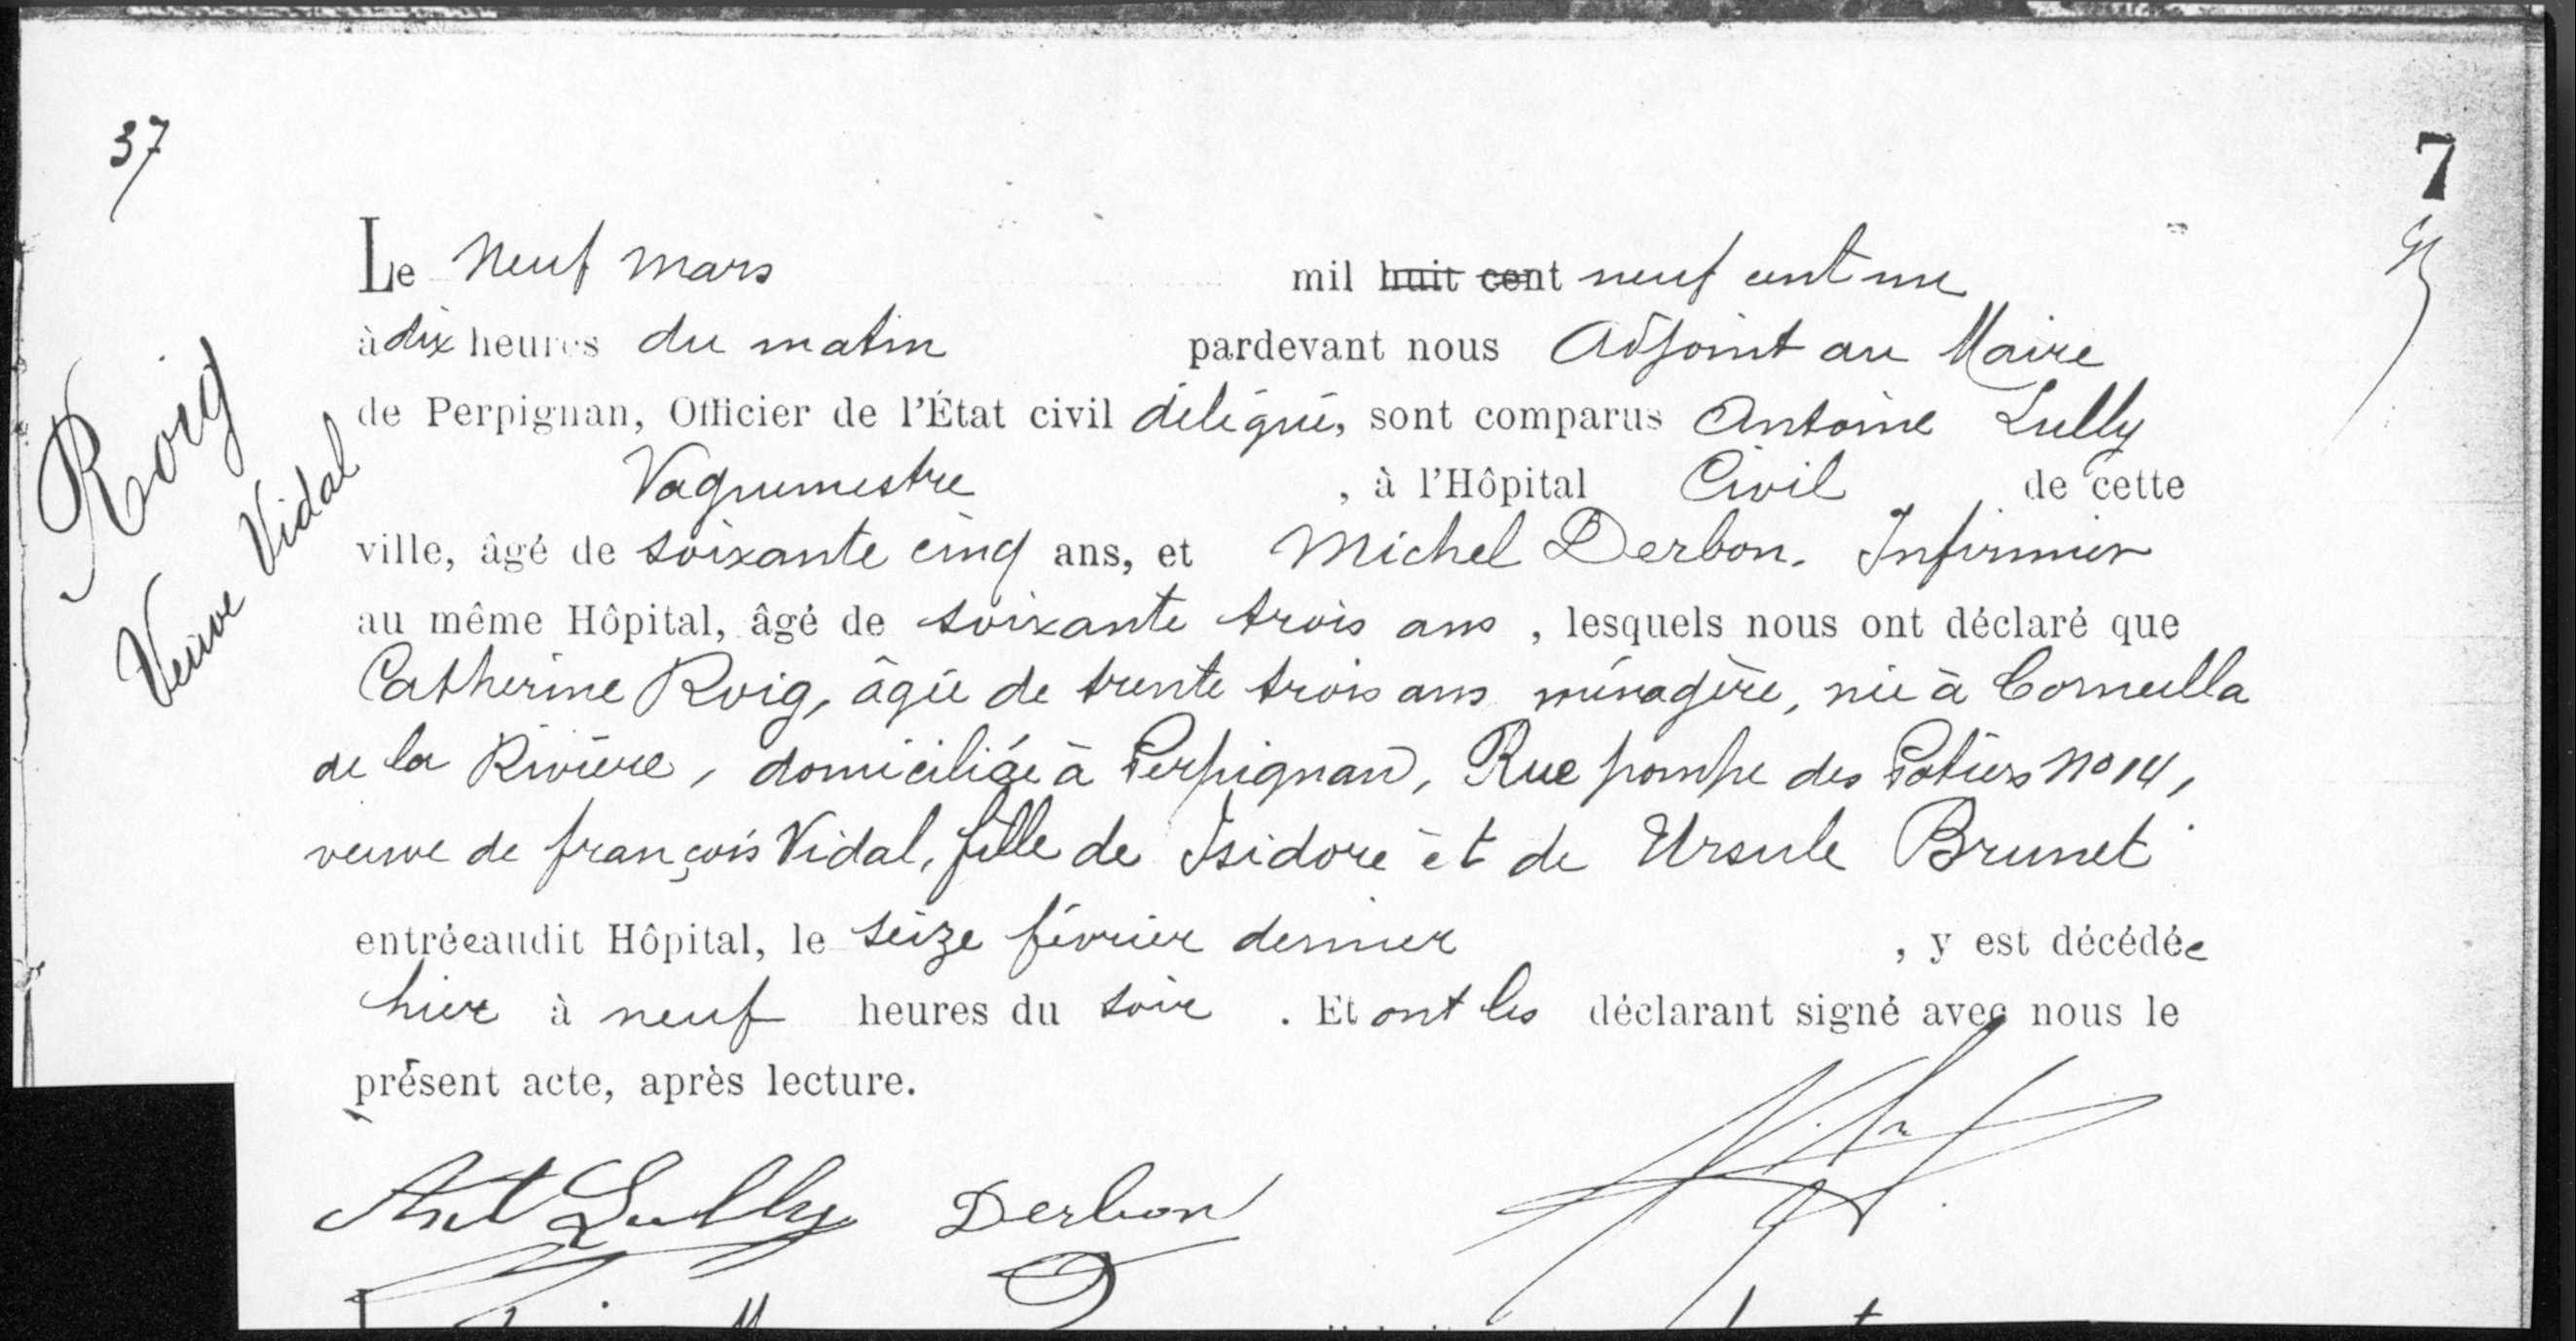 37
7
Roig
Veuve Vidal
Le neuf mars mil huit cent neuf cent un
à dix heures du matin pardevant nous Adjoint au Maire
de Perpignan, Officier de l'État civil délégué, sont comparus Antoine Lully
Vaguemestre, à l'Hôpital Civil de cette
ville, âgé de soixante cinq ans, et Michel Derbon. Infirmier
au même Hôpital, âgé de soixante trois ans, lesquels nous ont déclaré que
Catherine Roig, âgée de trente trois ans ménagère, née à Corneilla
de la Rivière, domiciliée à Perpignan, Rue pompe des Potiers no 14,
veuve de françois Vidal, fille de Isidore et de Ursule Brunet
entrée audit Hôpital, le seize février dernier, y est décédée
hier à neuf heures du soir. Et ont les déclarant signé avec nous le
présent acte, après lecture.
Ant Lully Derbon